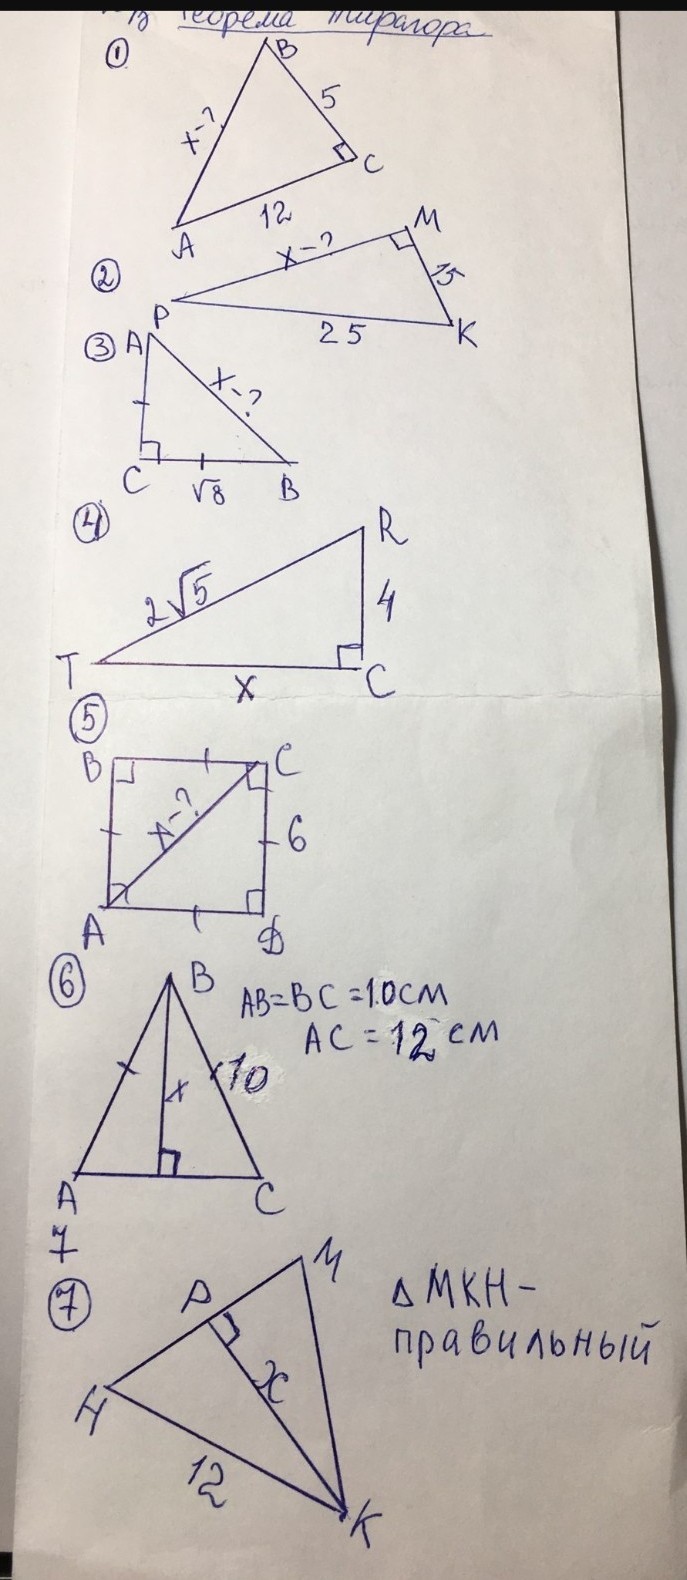 Теорема Пифагора
①
B
5
x-?
C
12
A
M
②
x-?
15
P
25
K
③ A
x-?
C
√8
B
④
R
2√5
4
T
x
C
⑤
B
C
x-?
6
A
D
⑥
B
AB=BC=10см
AC=12 см
10
x
A
C
7
⑦
M
P
Δ МКН-
правильный
x
H
12
K